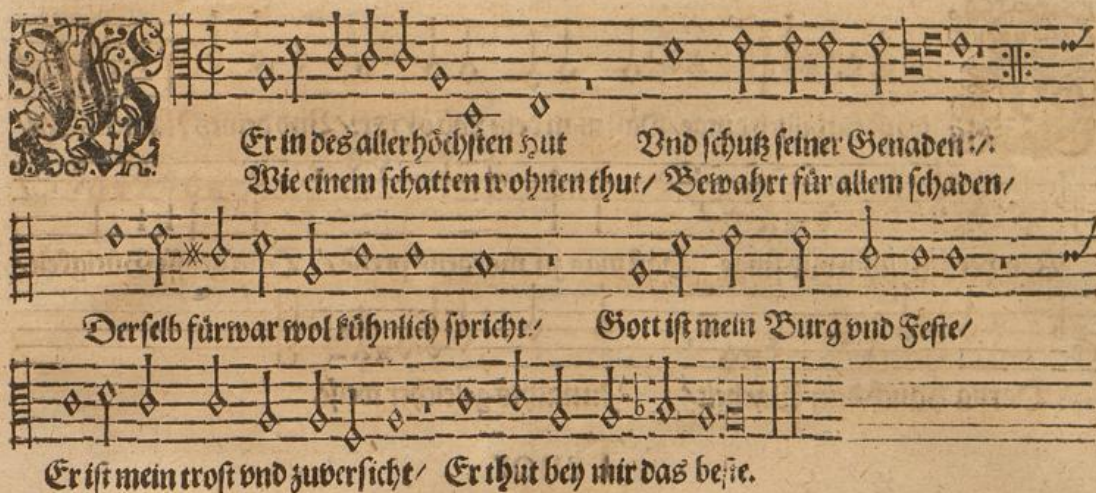 WEr in des allerhöchsten Hut Vnd schutz seiner Genaden :/:
Wie einem schatten wohnen thut/ Bewahrt für allem schaden/
Derselb fürwar wol kühnlich spricht/ Gott ist mein Burg vnd Feste/
Er ist mein trost vnd zuversicht/ Er thut bey mir das beste.